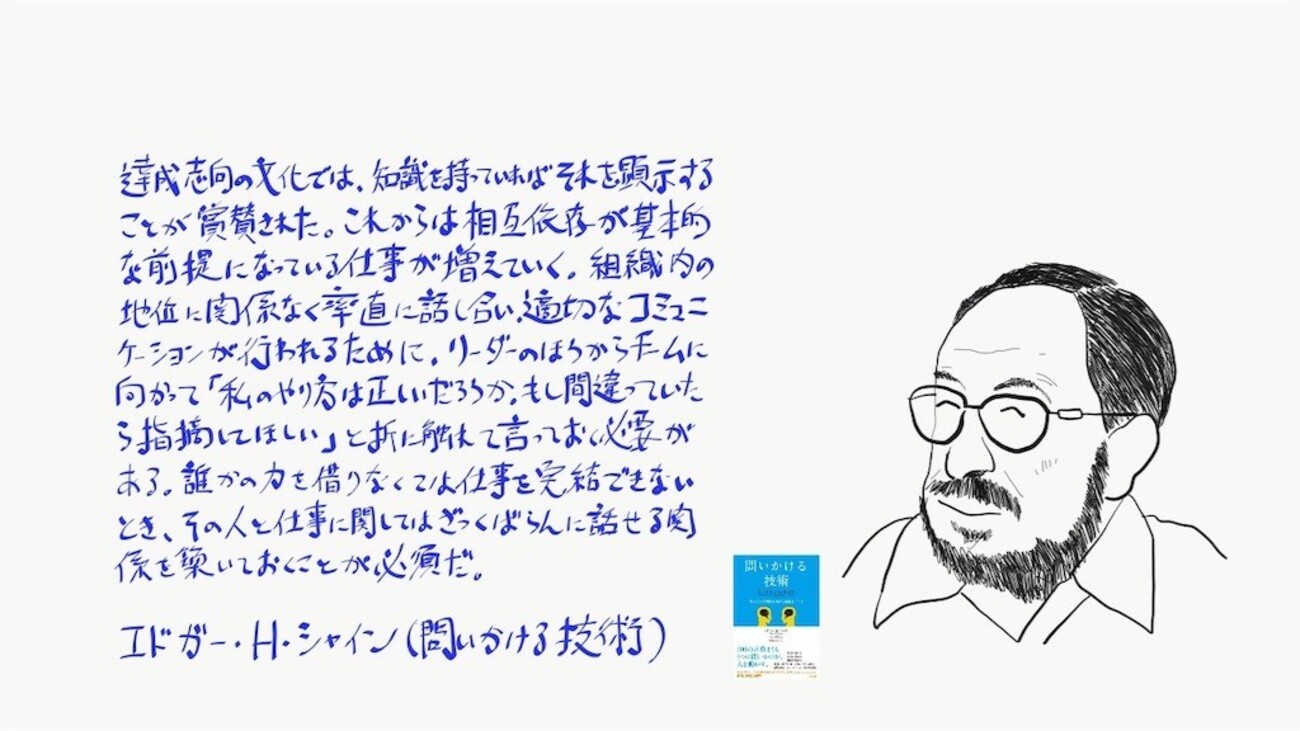 達成志向の文化では、知識を持っていればそれを顕示する
ことが賞賛された。これからは相互依存が基本的
な前提になっている仕事が増えていく。組織内の
地位に関係なく率直に話し合い、適切なコミュニ
ケーションが行われるために、リーダーのほうからチームに
向かって「私のやり方は正しいだろうか。もし間違っていた
ら指摘してほしい」と折に触れて言っておく必要が
ある。誰かの力を借りなくては仕事を完結できない
とき、その人と仕事に関してはざっくばらんに話せる関
係を築いておくことが必須だ。
エドガー・H・シャイン(問いかける技術)
問いかける
技術